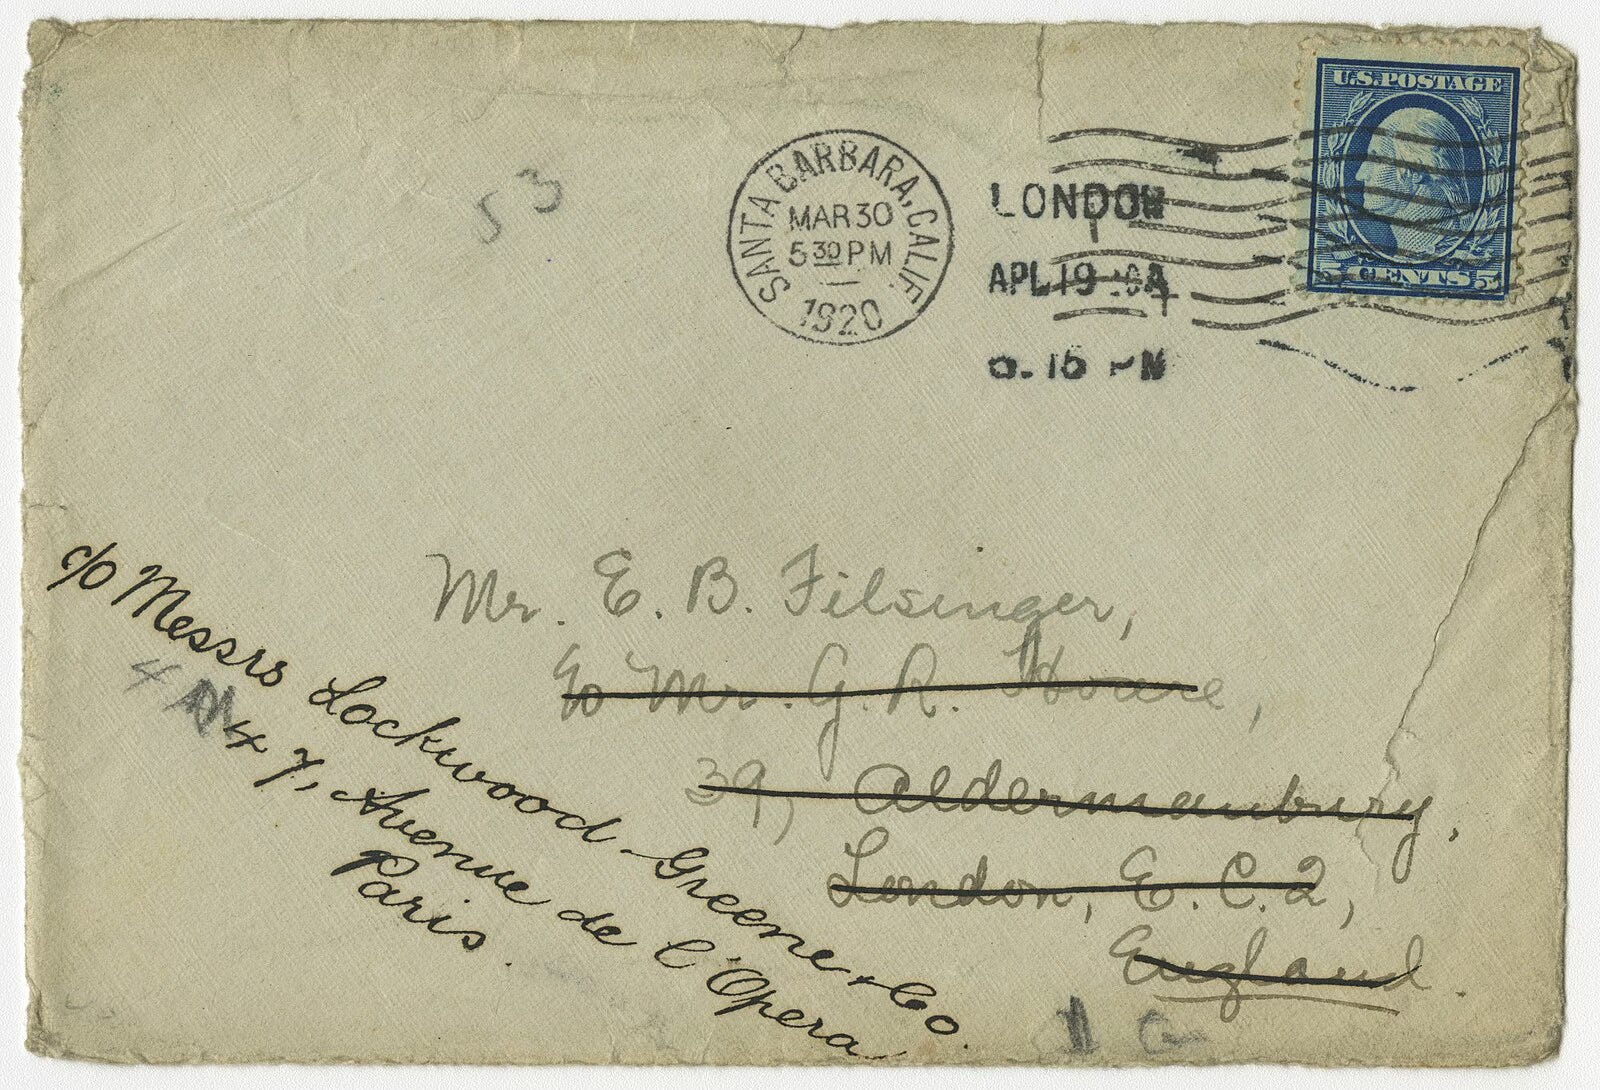 53
SANTA BARBARA, CALIF.
MAR 30
5 30 PM
1920
LONDON
APL 19
15 PM
U.S. POSTAGE
5 CENTS 5
Mr. E. B. Filsinger,
c/o Mr. G. R. Hoare,
39, Aldermanbury,
London, E. C. 2,
England.
c/o Messrs Lockwood-Greene & Co.
47, Avenue de l'Opera
Paris.